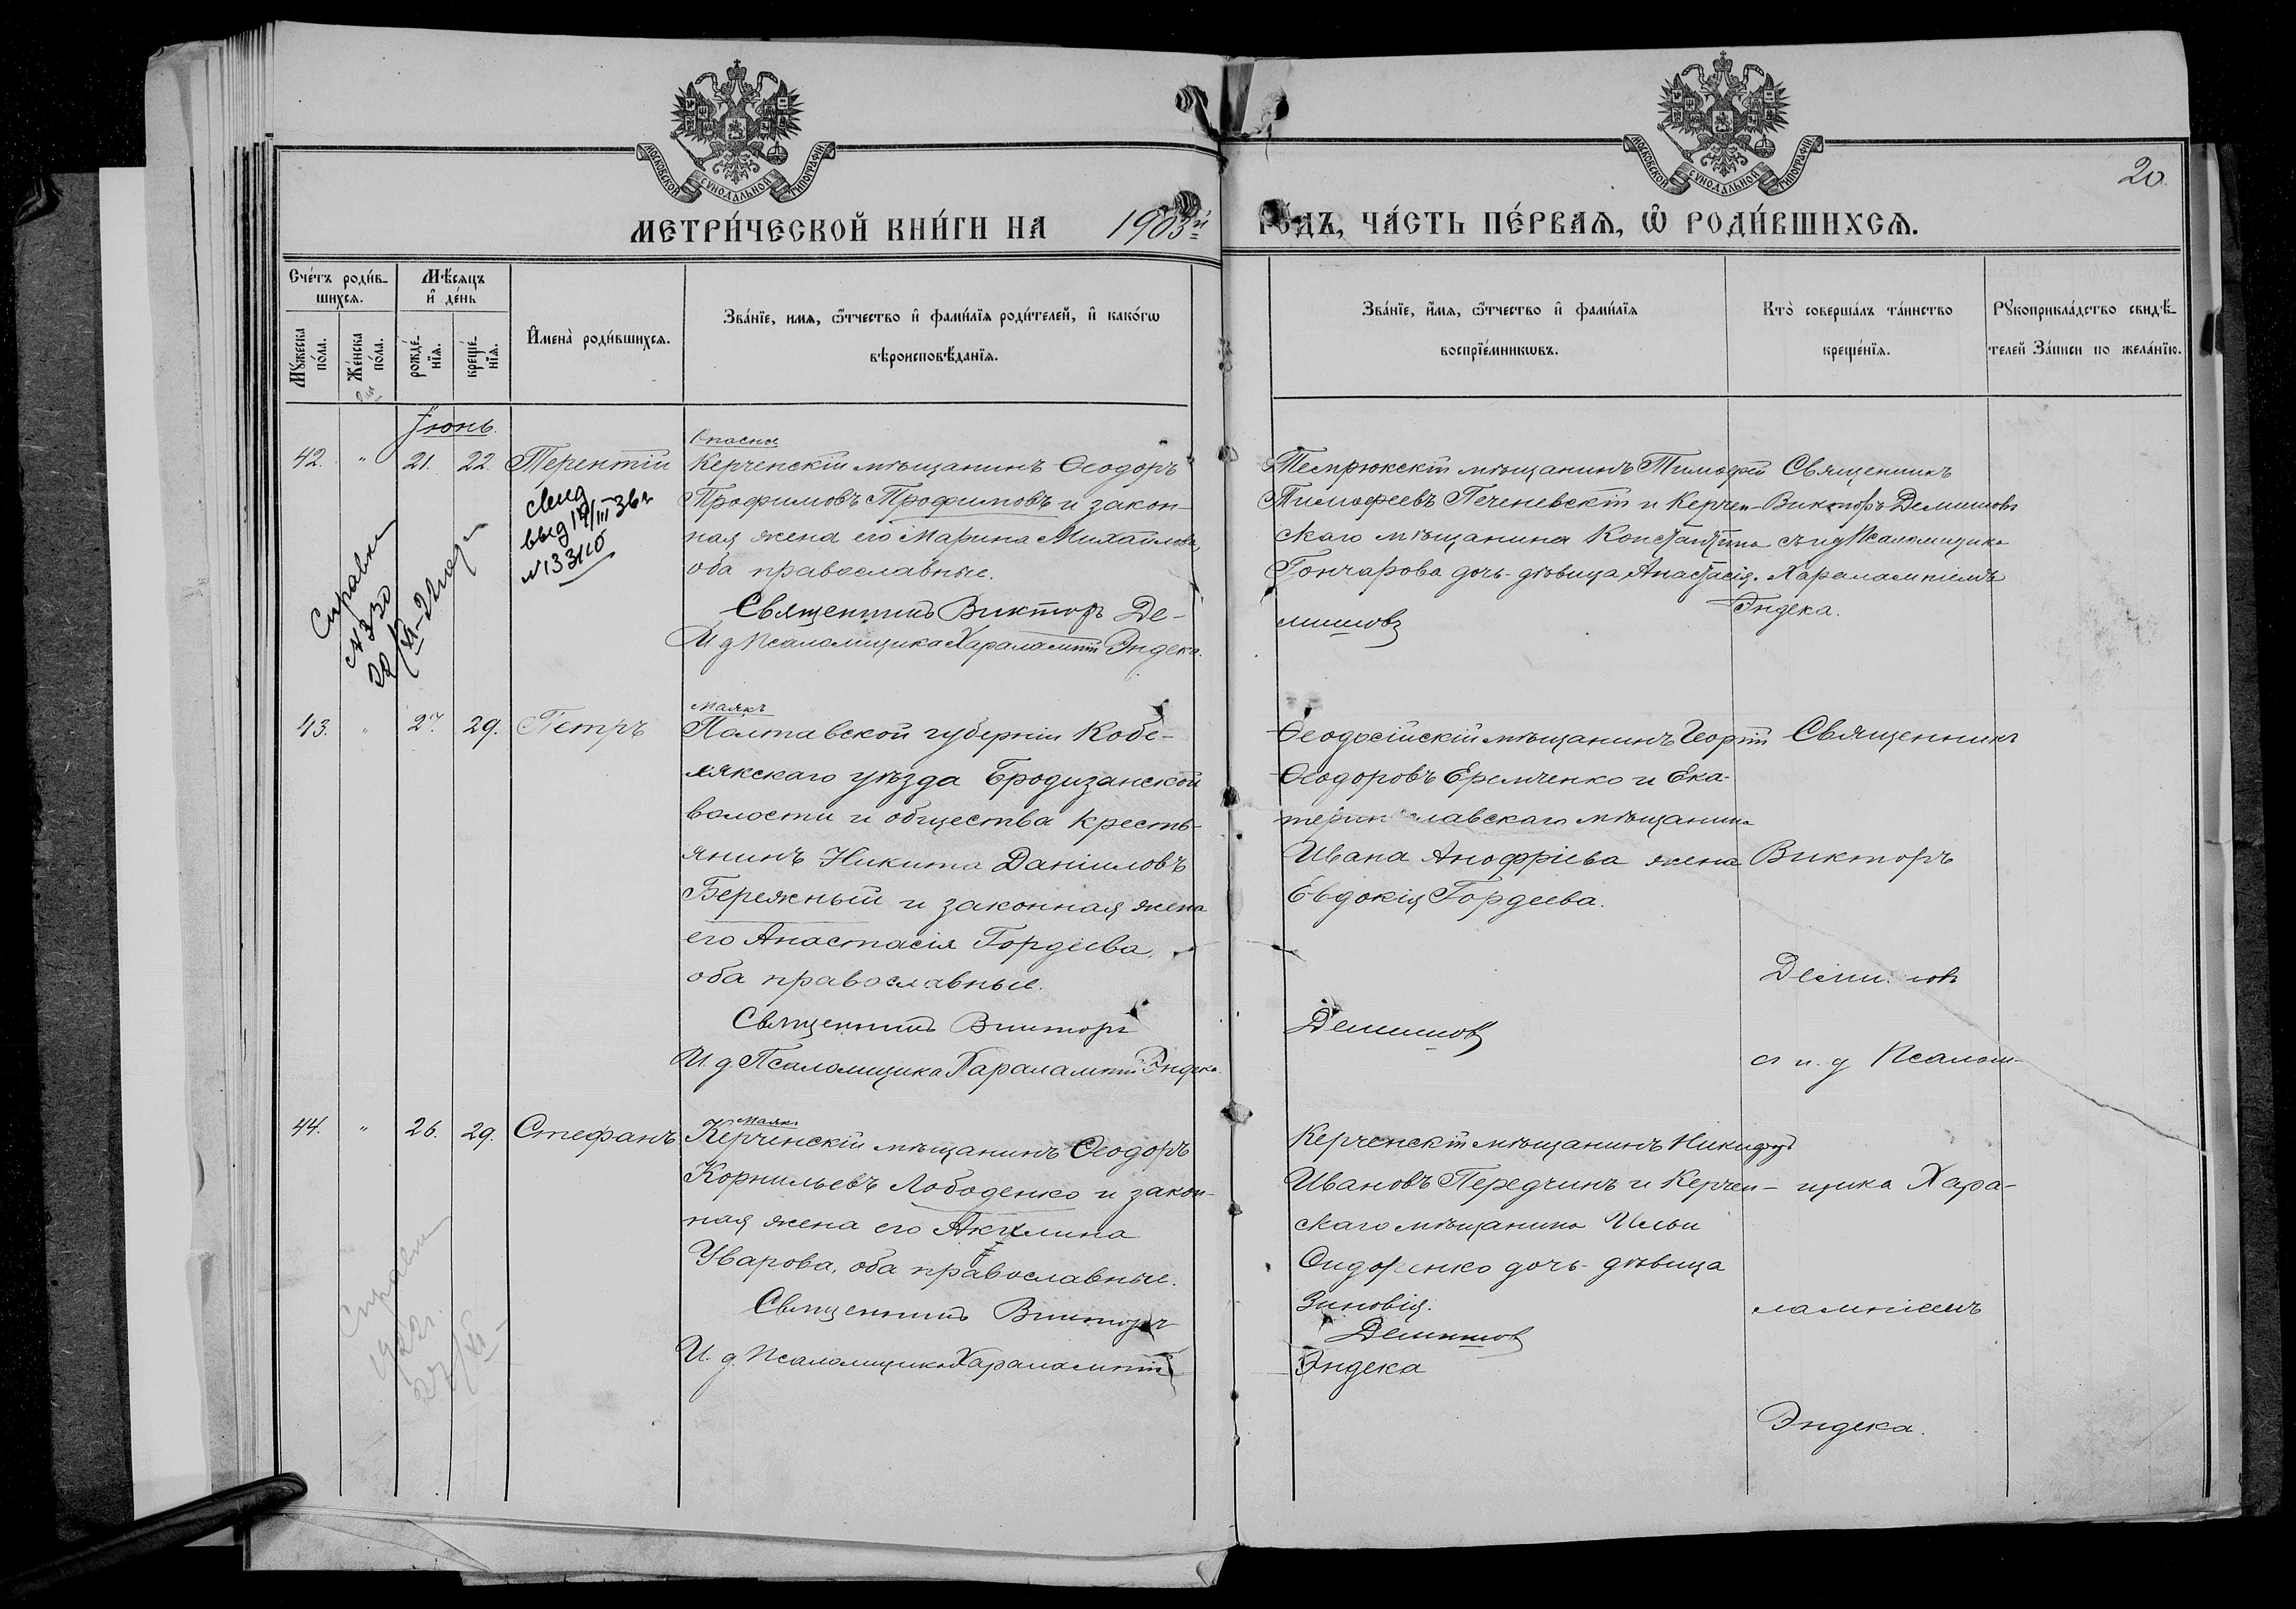 МОСКОВСКОЙ СУНОДАЛЬНОЙ ТИПОГРАФІИ
МОСКОВСКОЙ СУНОДАЛЬНОЙ ТИПОГРАФІИ
20.
МЕТРИ́ЧЕСКОЙ КНИ́ГИ НА 1903й ГО́ДЪ, ЧА́СТЬ ПЕ́РВАѦ, Ѿ РОДИ́ВШИХСѦ.
Сче́тъ роди́в-
шихсѧ.
Мꙋжеска по́ла.
Же́нска по́ла.
Мѣ́сяцъ и҆ де́нь
рожде́нїѧ.
креще́нїѧ.
И҆мена̀ роди́вшихсѧ.
Зва́нїе, имѧ, ѻ҆́тчество и҆ фами́лїѧ роди́телей, и҆ како́гѡ
вѣроисповѣ́данїѧ.
Зва́нїе, и҆́мѧ, ѻ҆́тчество и҆ фами́лїѧ
воспрїе́мникѡвъ.
Кто̀ соверша́лъ та́инство
креще́нїѧ.
Рꙋкоприкла́дство свидѣ́-
телей За́писи по жела́нїю.
Іюнь.
42. " 21. 22. Терентій
Керченскій мѣщанинъ Ѳеодоръ
Трофимовъ Трофимовъ и закон-
ная жена его Марина Михайлова,
оба православные.
Священникъ Виктор Де-
И. д. Псаломщика Харалампій Эндека.
свид
выд 19/III 36 г
N 133110
Справка
N 330
Темрюкскій мѣщанинъ Тимофей
Тимофеевъ Печеневскій и Керчен-
скаго мѣщанина Константина
Гончарова дочь-дѣвица Анастасія.
мишовъ
Священникъ
Викторъ Демишовъ
съ и д Псаломщика
Харалампіемъ
Эндека.
43. " 27. 29. Петръ
Маякъ
Полтавской губерніи Кобе-
лякскаго уѣзда Бродизанской
волости и общества кресть-
янинъ Никита Даніиловъ
Бережный и законная жена
его Анастасія Гордіева,
оба православные.
Священникъ Викторъ
И. д. Псаломщика Харалампій Эндека
Ѳеодосійскій мѣщанинъ Георгій
Ѳеодоровъ Еремченко и Ека-
теринославскаго мѣщанина
Ивана Анофріева жена
Евдокія Гордеева.
Демишовъ
Священникъ
Викторъ
Демишовъ
съ и. д Псалом-
44. " 26. 29. Стефанъ
Маякъ
Керченскій мѣщанинъ Ѳеодоръ
Корнильевъ Лободенко и закон-
ная жена его Акулина
Уварова, оба православные.
Священникъ Викторъ
И. д. Псаломщика Харалампій
Справка
1922г.
27/XI
Керченскій мѣщанинъ Никифоръ
Ивановъ Передчинъ и Керчен-
скаго мѣщанина Ильи
Сидоренко дочь-дѣвица
Зиновія.
Демишовъ
Эндека
щика Хара-
лампіемъ
Эндека.